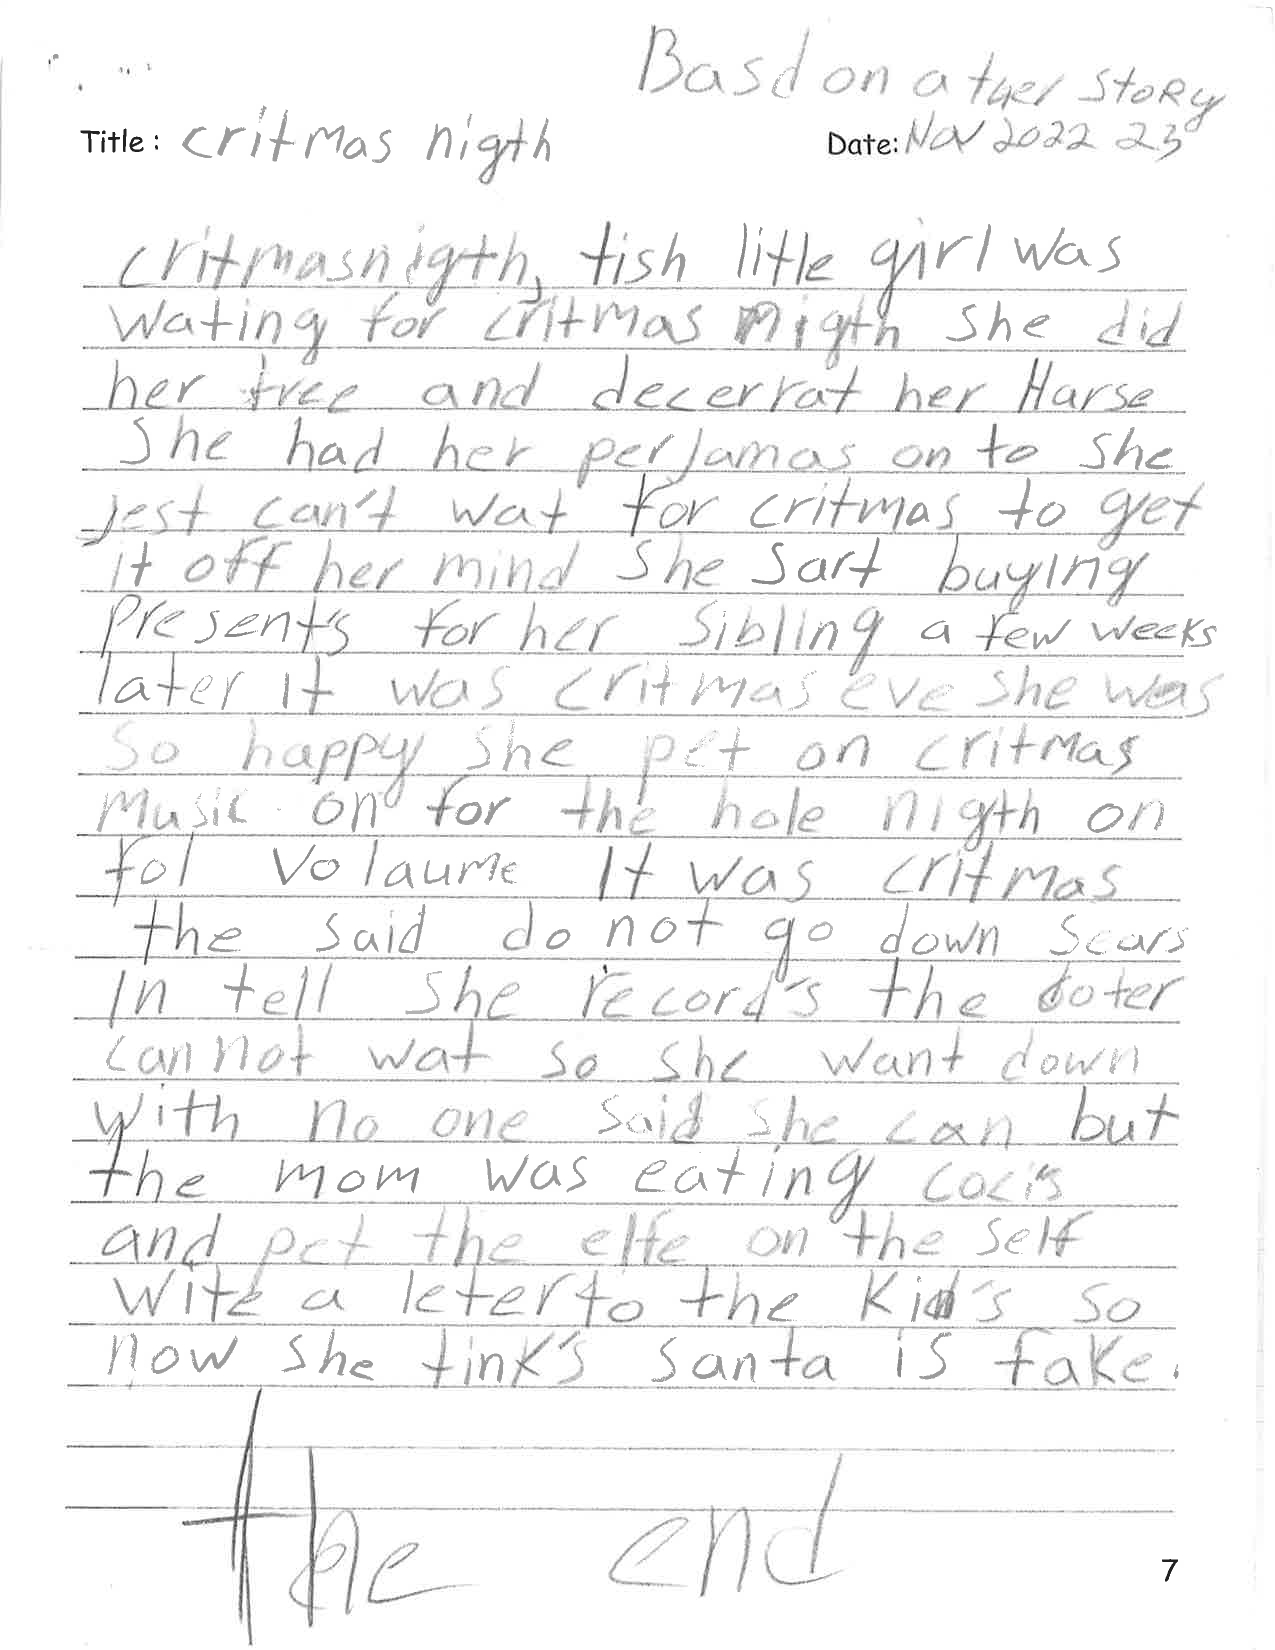 Basd on a ther story
Title : critmas nigth Date: Nov 2022 23
critmasnigth, tish litle girl was
wating for critmas nigth she did
her tree and decerrat her Harse
She had her perjamas on to she
jest can't wat for critmas to get
it off her mind She Sart buying
Presents for her Sibling a few weeks
later It was critmas eve she was
So happy She pet on critmas
Music on for the hole nigth on
fol Volaume It was critmas
the said do not go down Sears
In tell she record's the doter
can not wat so she want down
with no one said she can but
the mom was eating cocis
and pet the elfe on the self
Wite a leter to the Kid's so
now she tink's Santa is fake.
the end
7